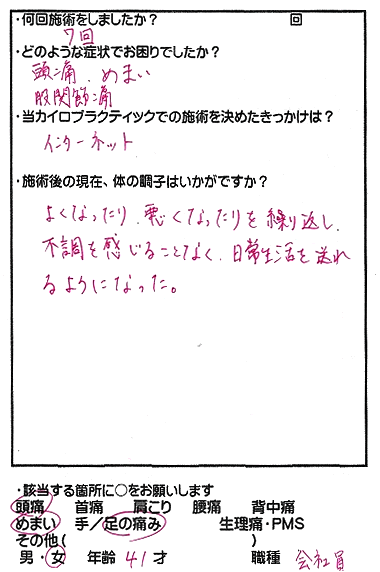 ・何回施術をしましたか？ 回
7回
・どのような症状でお困りでしたか？
頭痛、めまい
股関節痛
・当カイロプラクティックでの施術を決めたきっかけは？
インターネット
・施術後の現在、体の調子はいかがですか？
よくなったり、悪くなったりを繰り返し、
不調を感じることなく、日常生活を送れ
るようになった。
・該当する箇所に○をお願いします
頭痛 首痛 肩こり 腰痛 背中痛
めまい 手／足の痛み 生理痛・PMS
その他( )
男・女 年齢 41才 職種 会社員